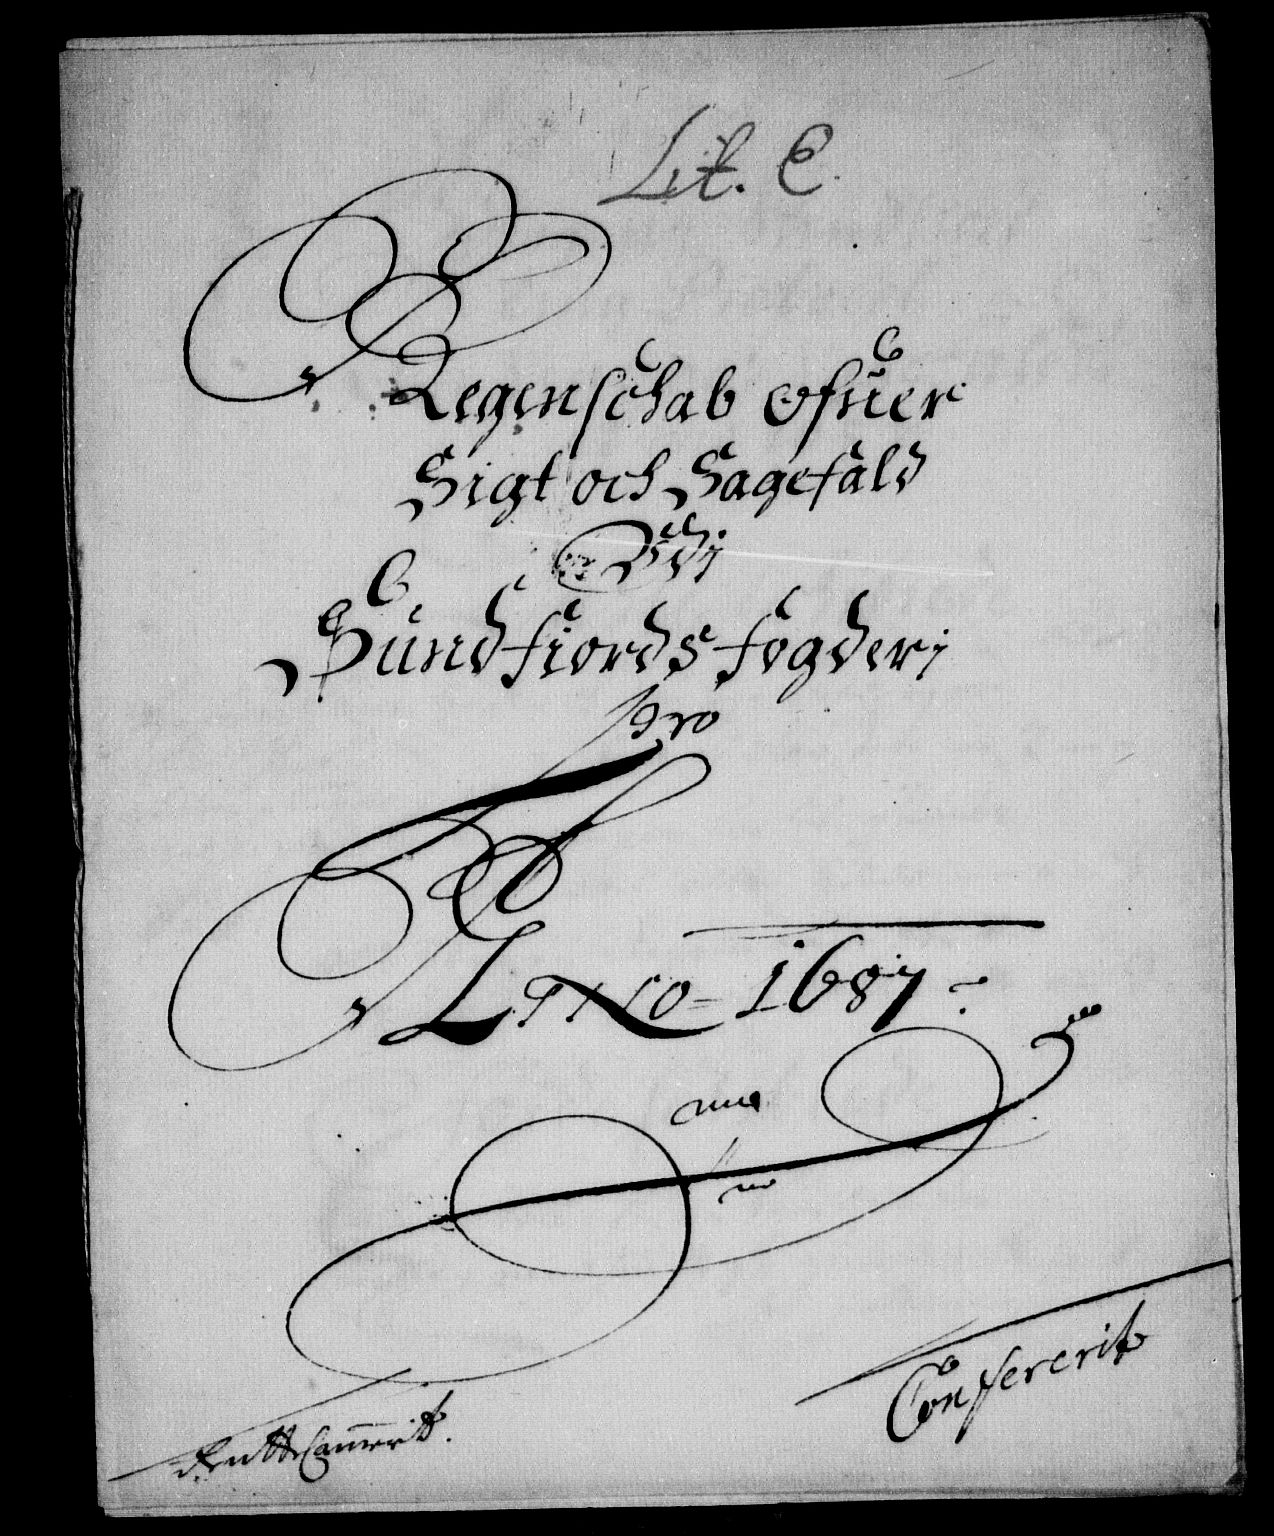 Lit. C
Regenschab ofuer
Sigt och Sagefald
Udi
Sundfiords fogderi
Pro
Anno 1687
Confererit